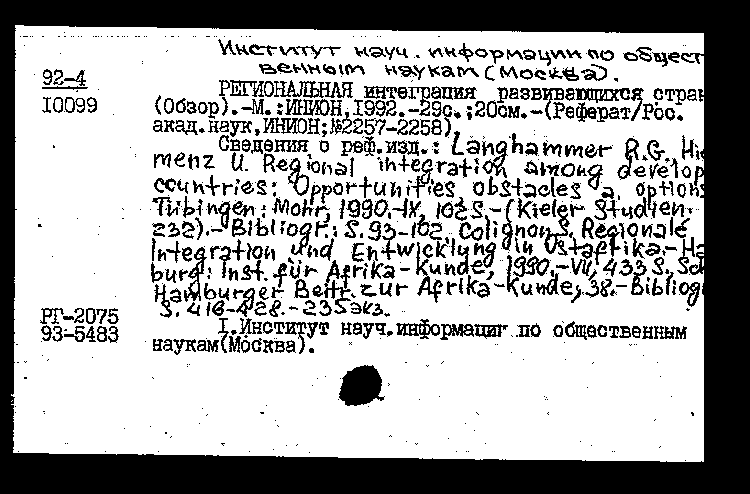 Институт науч. информации по общест
92-4 венным наукам (Москва).
РЕГИОНАЛЬНАЯ интеграция развивающихся стран
I0099 (Обзор).-М.:ИНИОН,I992.-29с.;20см.-(Реферат/Рос.
акад.наук,ИНИОН;№2257-2258).
Сведения о реф.изд.: Langhammer R.G. Hie
menz U. Regional integration among develop
countries: Opportunities, obstacles a. options
Tübingen: Mohr, 1990.-IX, 102S.-(Kieler Studien;
232).-Bibliogr.: S.93-102. Colignon S. Regionale
Integration und Entwicklung in Ostafrika.-Ha
burg: Inst. für Afrika-Kunde, 1990.-VII, 433 S. Sch
Hamburger Beitr. zur Afrika-Kunde; 38.-Bibliog
РГ-2075 S. 416-428.-235экз.
93-5483 I.Институт науч.информации по общественным
наукам(Москва).